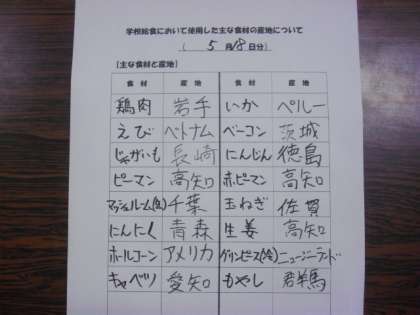 学校給食において使用した主な食材の産地について
( 5月18日分)
【主な食材と産地】
食材 産地 食材 産地
鶏肉 岩手 いか ペルー
えび ベトナム ベーコン 茨城
じゃがいも 長崎 にんじん 徳島
ピーマン 高知 赤ピーマン 高知
マッシュルーム(缶) 千葉 玉ねぎ 佐賀
にんにく 青森 生姜 高知
ホールコーン アメリカ グリンピース(冷) ニュージーランド
キャベツ 愛知 もやし 群馬